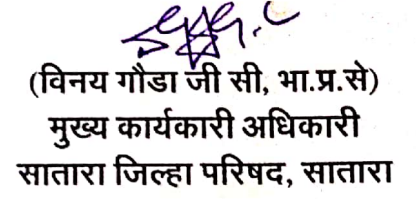 (विनय गौडा जी सी, भा.प्र.से)
मुख्य कार्यकारी अधिकारी
सातारा जिल्हा परिषद, सातारा